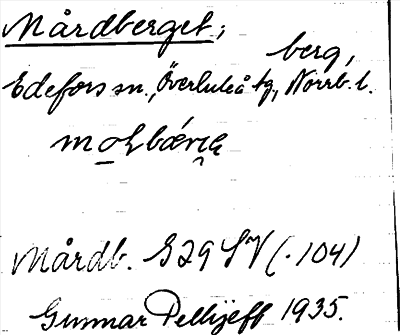 Mårdberget;
berg,
Edefors sn., Överluleå tg, Norrb. l.
Mårdb. S29 SV (·104)
Gunnar Pellijeff 1935.